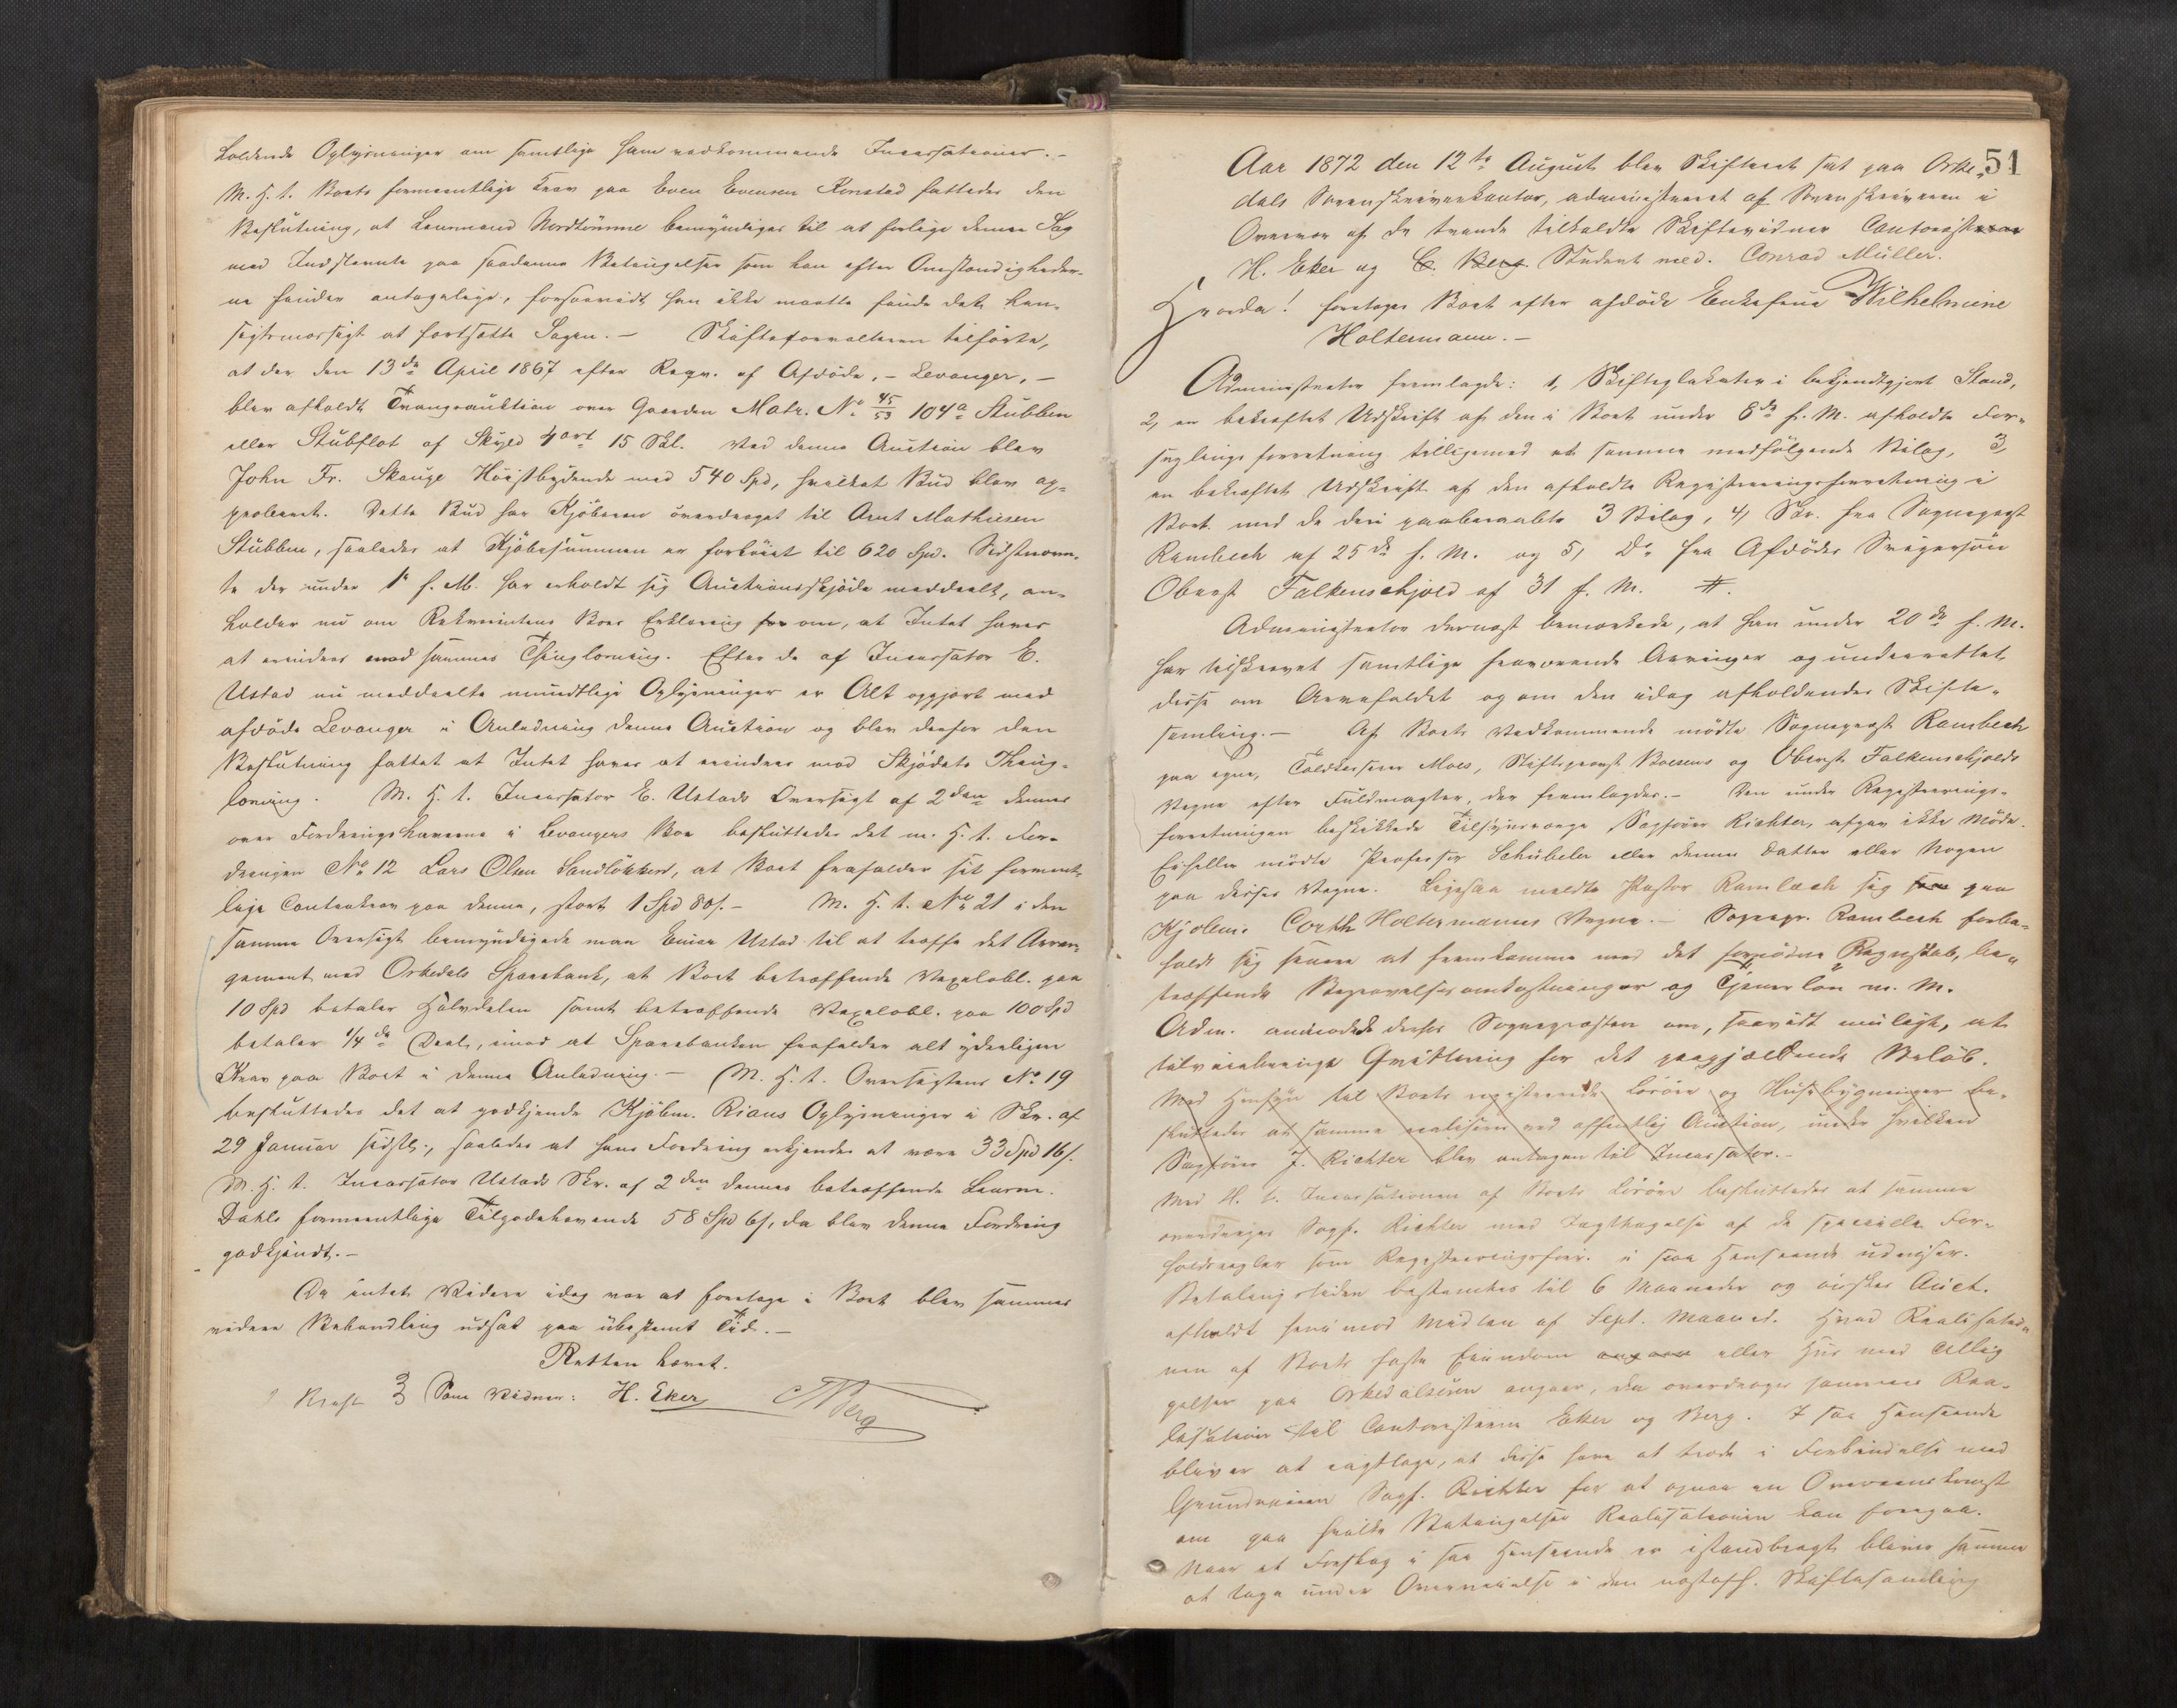 holdende Oplysninger om samtlige ham vedkommende Incassationer. –
M. H. t. Boets formeentlige Krav paa Even Evensen Konstad fattedes den
Beslutning, at Lensmand Nordtömme bemyndiges til at forlige denne Sag
med Indstevnte paa saadanne Betingelser som han efter Omstændigheder-
ne finder antagelige, forsaavidt han ikke maatte finde det hen-
sigtsmæssigt at fortsætte Sagen. – Skifteforvalteren tilförte,
at der den 13de April 1867 efter Reqv. af Afdöde, – Levanger, –
blev afholdt Tvangsauktion over Gaarden Matr. No 45/53 104a Stubben
eller Stubflot af Skyld 4 ort 15 Skl. Ved denne Auction blev
John Fr. Skauge Höistbydende med 540 Spd, hvilket Bud blev ap-
proberet. Dette Bud har Kjöberen overdraget til Arnt Mathiesen
Stubben, saaledes at Kjöbesummen er forhöiet til 620 Spd. Sidstnævn-
te der under 1 f. M. har erholdt sig Auctionsskjöde meddeelt, an-
holder nu om Rekvirentens Boes Erklæring for om, at Intet haves
at erindres mod sammes Thinglæsning. Efter de af Incassator E.
Ustad nu meddeelte mundtlige Oplysninger er Alt opgjort med
afdöde Levanger i Anledning denne Auction og blev derfor den
Beslutning fattet at Intet haves at erindres mod Skjödets Thing-
læsning. M. H. t. Incassator E. Ustads Oversigt af 2den dennes
over Fordringshaverne i Levangers Bo besluttedes det m. H. t. For-
dringen No 12 Lars Olsen Sandlökken, at Boet frafalder sit forment-
lige Contrakrav paa denne, stort 1 Spd 80 s. – M. H. t. No 21 i den
samme Oversigt bemyndigede man Einar Ustad til at træffe det Arran-
gement med Orkedals Sparebank, at Boet betræffende Vexelobl. paa
10 Spd betaler Halvdelen samt betræffende Vexelobl. paa 100 Spd
betaler 1/4de Deel, imod at Sparebanken frafalder alt yderligere
Krav paa Boet i denne Anledning. – M. H. t. Oversigtens No 19
besluttedes det at godkjende Kjöbm. Rians Oplysninger i Skr. af
29 Januar sidstl., saaledes at hans Fordring erkjendes at være 33 Spd 16 s.
M. H. t. Incassator Ustads Skr. af 2den dennes betræffende Lensm.
Dahls formeentlige Tilgodehavende 58 Spd 6 s, da blev denne Fordring
godkjendt. –
Da intet Videre idag var at foretage i Boet blev sammes
videre Behandling udsat paa ubestemt Tid. –
Retten hævet.
Kraft Som Vidner: H. Eker C Berg
51
Aar 1872 den 12te August blev Skifteret sat paa Orke-
dals Sorenskriverkontor, administreret af Sorenskriveren i
Overvær af de tvende tilkaldte Skiftevidner Contorist
H. Eker og C. Berg. Student med. Conrad Müller.
Hvorda! foretoges Boet efter afdöde Enkefrue Wilhelmine
Holtermann. –
Administrator fremlagde: 1, Skifteplakaten i bekjendtgjort Stand,
2, en bekræftet Udskrift af den i Boet under 8de f. M. afholdte For-
seglingsforretning tilligemed et samme medfölgende Bilag, 3,
en bekræftet Udskrift af den afholdte Registreringsforretning i
Boet med de deri paaberaabte 3 Bilag, 4, Skr. fra Sogneprest
Rambech af 25de f. M. og 5, Do fra Afdödes Svigersön
Oberst Falkenskjold af 31 f. M. #.
Administrator dernæst bemærkede, at han under 20de f. M.
har tilskrevet samtlige fraværende Arvinger og underrettet
disse om Arvefaldet og om den idag afholdendes Skifte-
samling. – Af Boets Vedkommende mödte Sogneprest Rambech
paa egne, Toldkasserer Moes, Stiftsprovst Boesens og Oberst Falkenskjolds
Vegne efter Fuldmagter, der fremlagdes. – Den under Registrerings-
forretningen beskikkede Tilsynsværge, Sagförer Richter, afgav ikke Möde.
Ei heller mödte Professor Schübeler eller dennes Datter eller Nogen
paa disses Vegne. Ligesaa meldte Pastor Rambech sig paa
Kjöbm. Corth Holtermanns Vegne. – Sognepr. Rambech forbe-
holdt sig senere at fremkomme med det fornödne Regnskab, be-
træffende Begravelsesomkostninger og Tjenerlön m. M.
Adm. anmodede derfor Sognepresten om, saavidt muligt, at
tilveiebringe Qvittering for det paagjældende Belöb.
Med Hensyn til Boets registrerede Lösöre og Husebygninger be-
sluttedes at samme realiseres ved offentlig Auction, under hvilken
Sagförer J. Richter blev antagen til Incassator. –
Med H. t. Incassationen af Boets Lösöre besluttedes at samme
overdrages Sagf. Richter med Iagttagelse af de specielle For-
holdsregler som Registreringsforr. i saa Henseende udviser.
Betalingstiden bestemtes til 6 Maaneder og önskes Auct.
afholdt henimod Midten af Sept. Maaned. Hvad Realisatio-
nen af Boets faste Eiendom angaaer eller Hus med Tillig-
gelser paa Orkedalsören angaar, da overdroges sammes Rea-
lisation til Contoristerne Eker og Berg. I saa Henseende
bliver at iagttage, at disse have at træde i Forbindelse med
Grundeieren Sagf. Richter for at opnaa en Overeenskomst
om paa hvilke Betingelser Realisationen kan foregaa.
Naar et Forslag i saa Henseende er istandbragt bliver samme
at tage under Overveielse i den næstafh. Skiftesamling